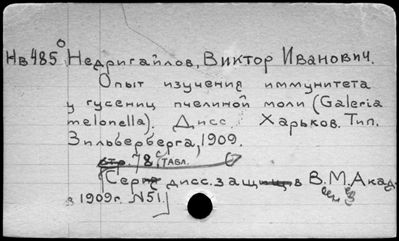 Нв485° Недригайлов, Виктор Иванович.
Опыт изучения иммунитета
у гусениц пчелиной моли (Galeria
melonella). Дисс. Харьков. Тип.
Зильберберга, 1909.
стр. 78 с табл.
[Серия дисс. защищ в В.М. Акад.
в 1909г. №51.]